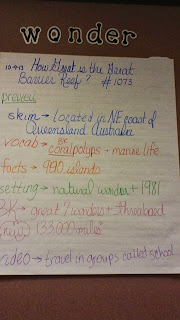 wonder
10-9-13 How Great is the Great
Barrier Reef? #1073
preview
skim → located in NE coast of
Queensland Australia
vocab → coral polyps - marine life
facts → 900 islands
setting → natural wonder + 1981
BK → great 7 wonders + threatened
(new) 133,000 miles²
video → travel in groups called school